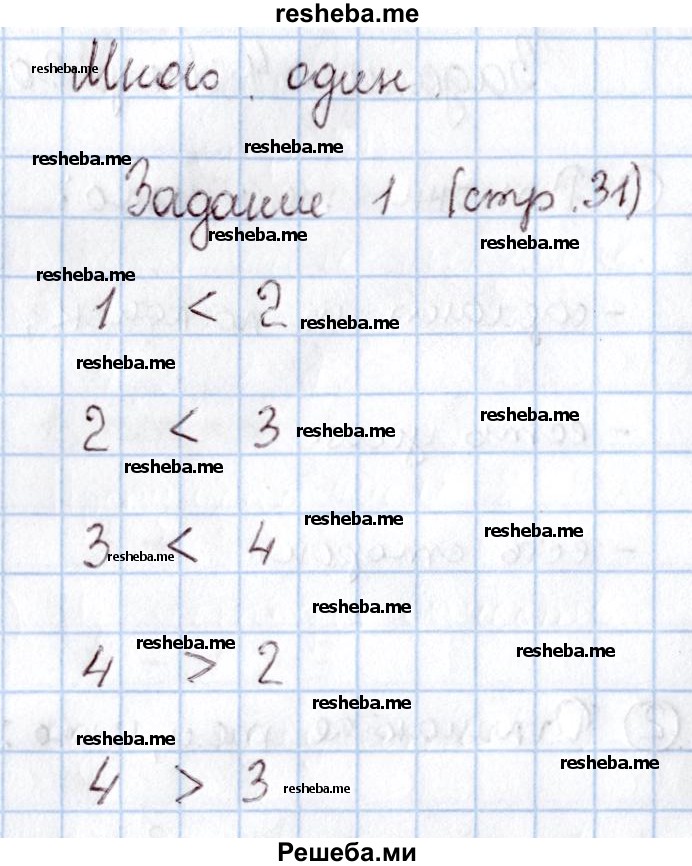 resheba.me
Много. один.
resheba.me
resheba.me
resheba.me
Задание 1 (стр. 31)
resheba.me
resheba.me
resheba.me
1 < 2
resheba.me
resheba.me
resheba.me
2 < 3
resheba.me
resheba.me
resheba.me
resheba.me
3 < 4
resheba.me
resheba.me
resheba.me
4 > 2
resheba.me
resheba.me
resheba.me
resheba.me
4 > 3
resheba.me
Решеба.ми